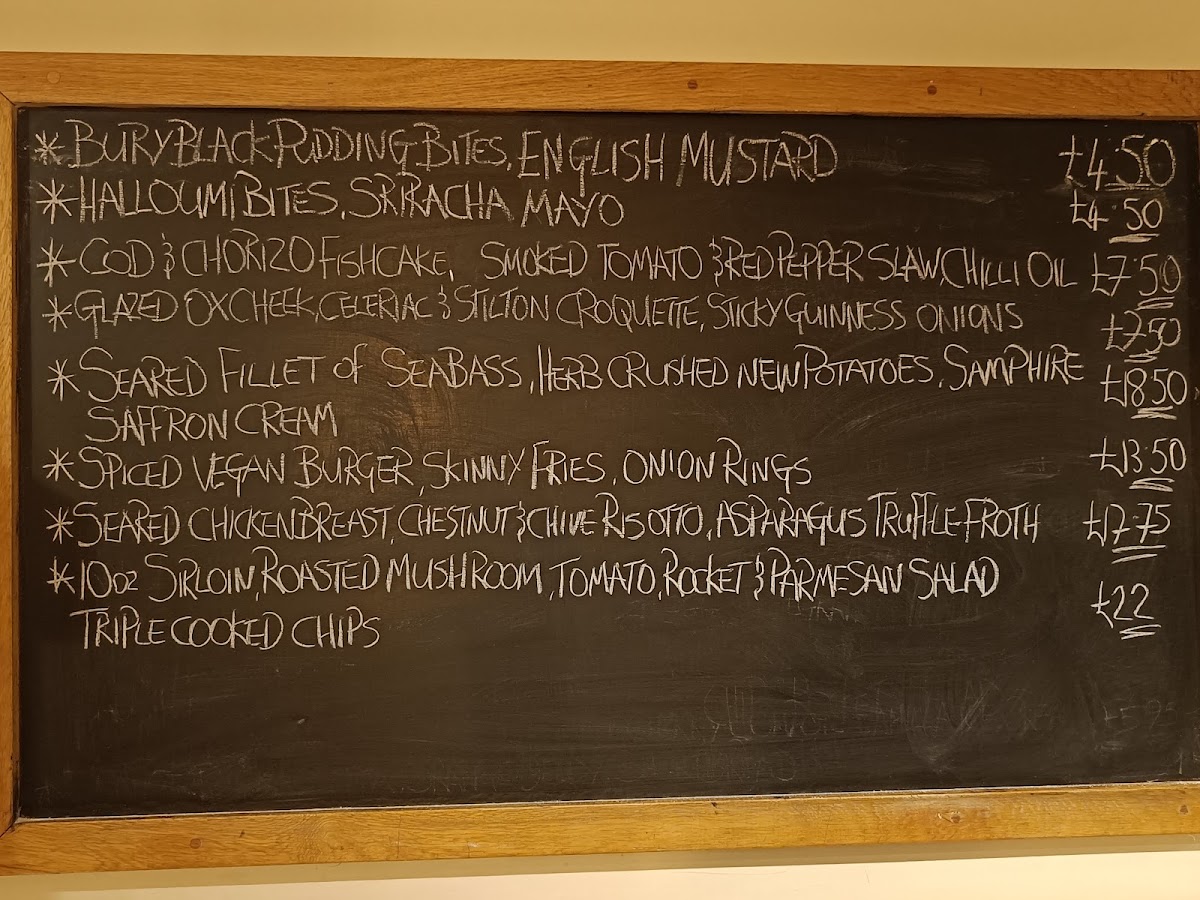 * BURY BLACK PUDDING BITES, ENGLISH MUSTARD £4.50
* HALLOUMI BITES, SRIRACHA MAYO £4.50
* COD & CHORIZO FISHCAKE, SMOKED TOMATO & RED PEPPER SLAW, CHILLI OIL £7.50
* GLAZED OX CHEEK, CELERIAC & STILTON CROQUETTE, STICKY GUINNESS ONIONS £7.50
* SEARED FILLET of SEABASS, HERB CRUSHED NEW POTATOES, SAMPHIRE £18.50
SAFFRON CREAM
* SPICED VEGAN BURGER, SKINNY FRIES, ONION RINGS £13.50
* SEARED CHICKEN BREAST, CHESTNUT & CHIVE RISOTTO, ASPARAGUS TRUFFLE FROTH £17.75
* 10oz SIRLOIN, ROASTED MUSHROOM, TOMATO, ROCKET & PARMESAN SALAD £22
TRIPLE COOKED CHIPS